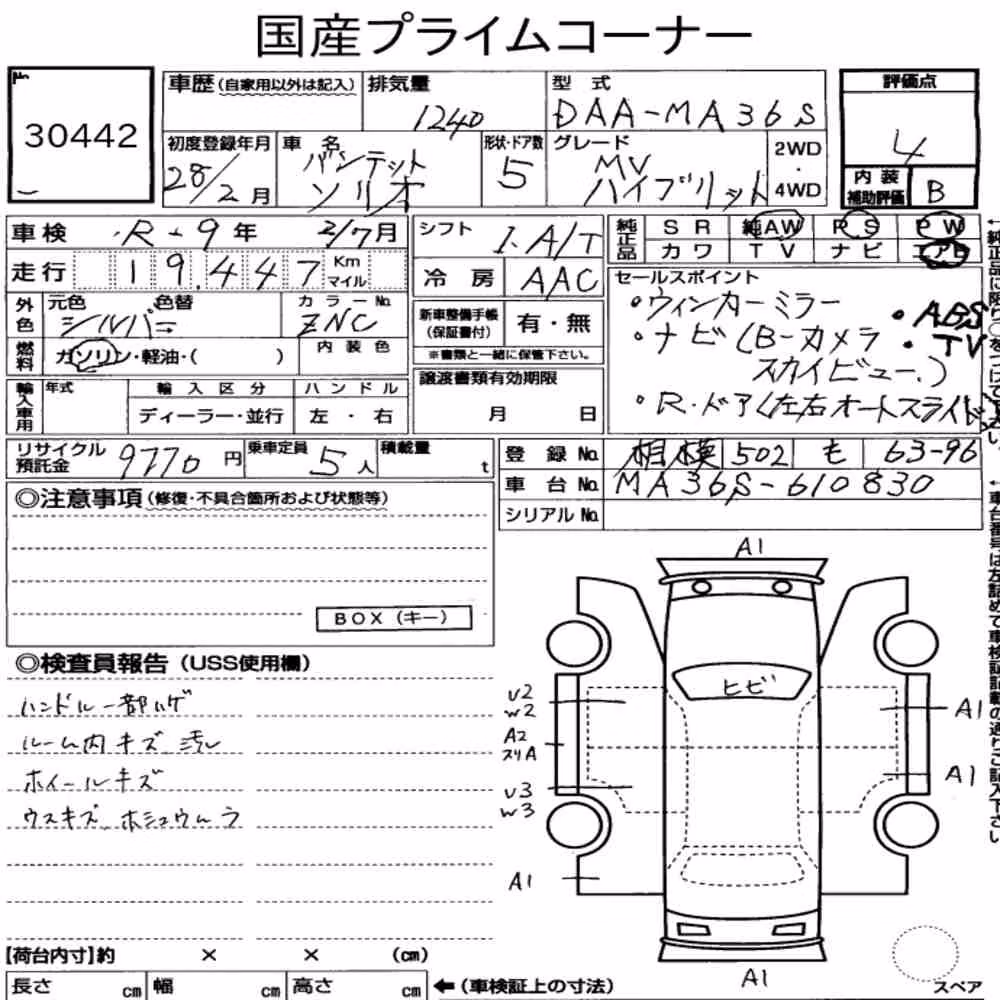 国産プライムコーナー
No.
30442
車歴(自家用以外は記入)
排気量
1240
型式
DAA-MA36S
評価点
4
初度登録年月
28/2月
車名
バンデット
ソリオ
形状・ドア数
5
グレード
MV
ハイブリット
2WD
・
4WD
内装
補助評価
B
車検
R-9年
2/7月
シフト
I.A/T
純正品
SR
純AW
PS
PW
カワ
TV
ナビ
エアB
走行
19.447
Km
マイル
冷房
AAC
セールスポイント
・ウィンカーミラー
・ABS
・ナビ(B-カメラ
・TV
スカイビュー.)
・R.ドア(左右オートスライド)
外色
元色
シルバー
色替
カラーNo.
ZNC
新車整備手帳
(保証書付)
有・無
※書類と一緒に保管下さい。
燃料
ガソリン・軽油・( )
内装色
譲渡書類有効期限
月 日
輸入車用
年式
輸入区分
ハンドル
ディーラー・並行
左・右
リサイクル
預託金
9770円
乗車定員
5人
積載量
t
登録No.
相模 502 も 63-96
車台No.
MA36S-610830
シリアルNo.
◎注意事項(修復・不具合箇所および状態等)
BOX(キー)
◎検査員報告(USS使用欄)
ハンドル一部ハゲ
ルーム内キズ 汚レ
ホイールキズ
ウスキズ ホシュウムラ
A1
ヒビ
U2
W2
A2
スリA
U3
W3
A1
A1
A1
A1
スペア
【荷台内寸】約 × × (cm)
長さ cm
幅 cm
高さ cm
←(車検証上の寸法)
←車台番号は左詰めで車検証記載の通りご記入下さい